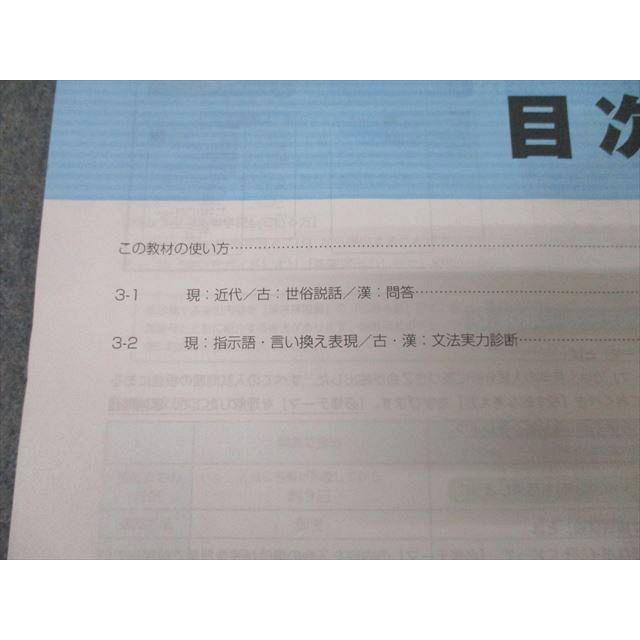 目次
この教材の使い方
3-1 現：近代／古：世俗説話／漢：問答
3-2 現：指示語・言い換え表現／古・漢：文法実力診断